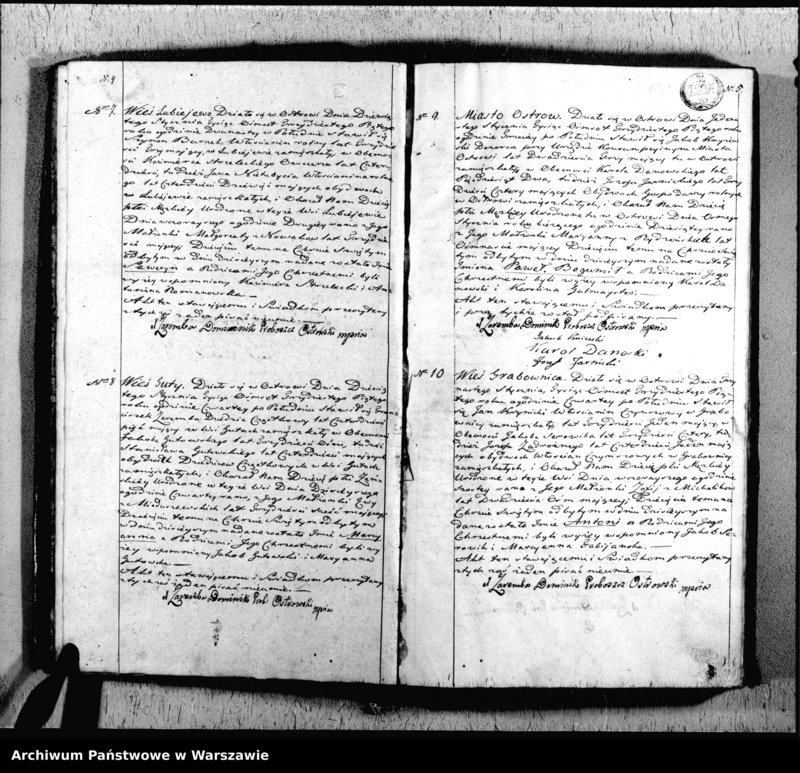 N. 4
No 7.
Wieś Lubiejewo Działo się w Ostrowi Dnia Dziewią-
tego Stycznia Tysiąc Ośmset Trzydziestego Piątego
roku o godzinie Dwunastey w Południe Stawił się
Włościanin rolny lat Trzydzie-
ści mający w Lubiejewie zamieszkały w Obecno-
ści Kaźmierza Strzeleckiego Owczarza lat Czter-
dzieści, tudzież Jana Włościanina rolne-
go lat Czterdzieści Dziewięć mających obydwóch
w Lubiejewie zamieszkałych, i Okazał Nam Dziecię
płci Męzkiey Urodzone w teyże Wsi Lubiejewie
Dnia wczorayszego o godzinie Drugiey rano z Jego
Małżonki Małgorzaty z Nowaków lat Trzydzie-
ści mającey Dziecięciu temu na Chrzcie Świętym
odbytym w Dniu dzisieyszym nadane zostało Imie
Seweryn a Rodzicami Jego Chrzestnemi byli
wyżey wspomniony Kaźmierz Strzelecki i An-
tonina Romanowska.
Akt ten stawającemu i Świadkom przeczytany
z tych żaden pisać nieumie.
X Zaremba Dominik Proboszcz Ostrowski mpria
No 8
Wieś Guty. Działo się w Ostrowi Dnia Dziewią-
tego Stycznia Tysiąc Ośmset Trzydziestego Piątego
roku o godzinie Czwartey po Południu Stawił się Fran-
ciszek Dziedzic Cząstkowy lat Czterdzieści
pięć mający we Wsi Gutach zamieszkały w Obecności
Jakóba Gutowskiego lat Trzydzieści Ośm, tudzież
Stanisława Gutowskiego lat Czterdzieści mających
obydwóch Dziedziców Cząstkowych w Wsi Gutach
zamieszkałych, i Okazał Nam Dziecię płci Żeń-
skiey Urodzone w teyże Wsi Dnia Dzisieyszego
o godzinie Czwartey rano, z Jego Małżonki Ewy
z lat Trzydzieści Sześć mającey
Dziecięciu temu na Chrzcie Świętym odbytym
w dniu dzisieyszym nadane zostało Imie Mary-
anna a Rodzicami Jego Chrzestnemi byli wy-
żey wspomniony Jakób Gutowski i Maryanna
Gutowska.
Akt ten stawającemu i Świadkom przeczytany
z tych żaden pisać nieumie.
X Zaremba Dominik Prob. Ostrowski mpria
N. 5
No 9.
Miasto Ostrow. Działo się w Ostrowi Dnia Jedena-
stego Stycznia Tysiąc Ośmset Trzydziestego Piątego roku
o godzinie Trzeciey po Południu Stawił się Jakób
Dozorca przy Urzędzie Konsumpcyinym Miasta
Ostrowi lat Dwadzieścia Trzy mający tu w Ostrowi
zamieszkały w Obecności Karola Danowskiego lat
Pięćdziesiąt Dwa, tudzież Józefa Jarnickiego lat Trzy-
dzieści Cztery mających Obydwóch Gospodarzy rolnych
w Ostrowi zamieszkałych, i Okazał Nam Dziecię
płci Męzkiey Urodzone tu w Ostrowi Dnia Osmego
Stycznia roku bieżącego o godzinie Dziewiątey rano
z Jego Małżonki Maryanny z lat
Ośmnaście mającey Dziecięciu temu na Chrzcie Świę-
tym odbytym w dniu dzisieyszym nadane zostały
Imiona Paweł, Bogumił a Rodzicami Jego
Chrzestnemi byli wyżey wspomniony Karol Da-
nowski i Karolina
Akt ten stawającemu i Świadkom przeczytany
i przez tychże został podpisany.
X Zaremba Dominik Proboszcz Ostrowski mpria
Jakub
Karol Danoski
Jozef Jarnicki
No 10
Wieś Grabownica. Działo się w Ostrowi Dnia Jede-
nastego Stycznia, Tysiąc Ośmset Trzydziestego Pią-
tego roku, o godzinie Czwartey po Południu Stawił
się Jan Włościanin Czynszowy w Grabo-
wnicy zamieszkały lat Trzydzieści Jeden mający w
Obecności Jakóba lat Trzydzieści Cztery, tu-
dzież Józefa lat Czterdzieści Jeden mają-
cych obydwóch Włościan Czynszowych w Grabownicy
zamieszkałych, i Okazał Nam Dziecię płci Męzkiey
Urodzone w teyże Wsi Dnia wczorayszego o godzinie
szóstey rano z Jego Małżonki Zofii z Michalików
lat Dwadzieścia Ośm mającey Dziecięciu temu na
Chrzcie Świętym odbytym w dniu dzisieyszym na-
dane zostało Imie Antoni a Rodzicami Jego
Chrzestnemi byli wyżey wspomniony Jakób
i Maryanna Fabijańska.
Akt ten stawającemu i Świadkom przeczytany
z tych zaś żaden pisać nieumie.
X Zaremba Dominik Proboszcz Ostrowski mpria
Archiwum Państwowe w Warszawie